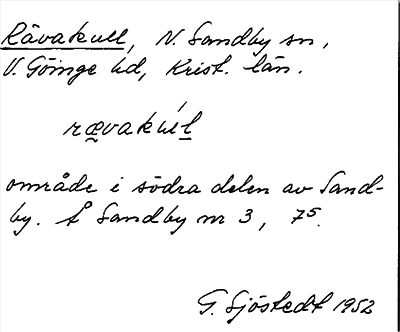 Rävakull, N. Sandby sn,
V. Göinge hd, Krist. län.
rævakúl
område i södra delen av Sand-
by. Å Sandby nr 3, 75.
G. Sjöstedt 1952